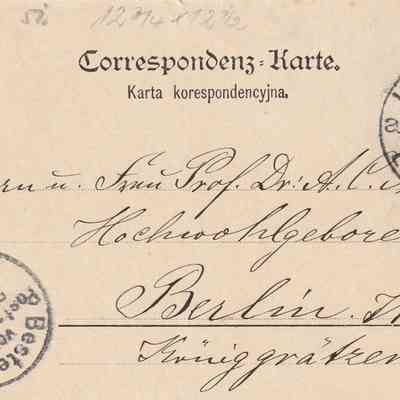 si 12 3/4 x 12 1/2
Correspondenz=Karte.
Karta korespondencyjna.
rn u. Frau Prof. Dr: A. C.
Hochwohlgebore
Berlin.
Königgrätzer
Beste
Post